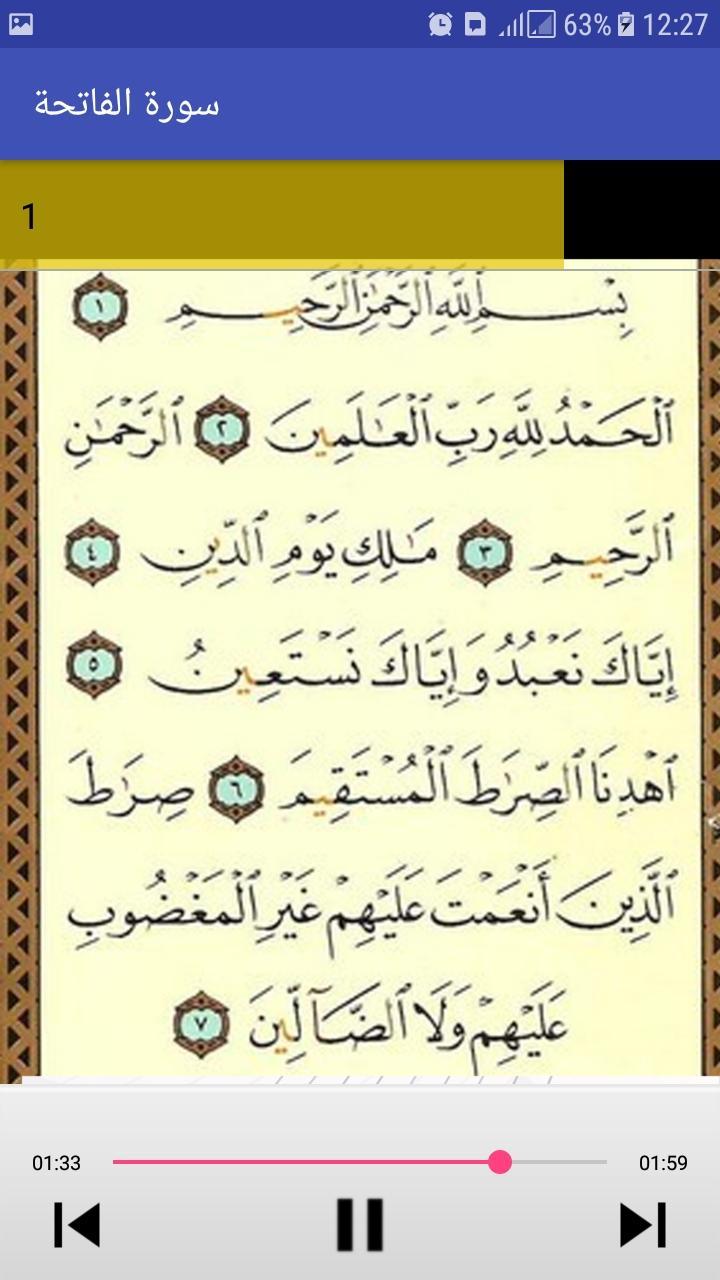 63% 12:27
سورة الفاتحة
1
بِسْمِ ٱللَّهِ ٱلرَّحْمَٰنِ ٱلرَّحِيمِ ١
ٱلْحَمْدُ لِلَّهِ رَبِّ ٱلْعَٰلَمِينَ ٢ ٱلرَّحْمَٰنِ
ٱلرَّحِيمِ ٣ مَٰلِكِ يَوْمِ ٱلدِّينِ ٤
إِيَّاكَ نَعْبُدُ وَإِيَّاكَ نَسْتَعِينُ ٥
ٱهْدِنَا ٱلصِّرَٰطَ ٱلْمُسْتَقِيمَ ٦ صِرَٰطَ
ٱلَّذِينَ أَنْعَمْتَ عَلَيْهِمْ غَيْرِ ٱلْمَغْضُوبِ
عَلَيْهِمْ وَلَا ٱلضَّآلِّينَ ٧
01:33 01:59